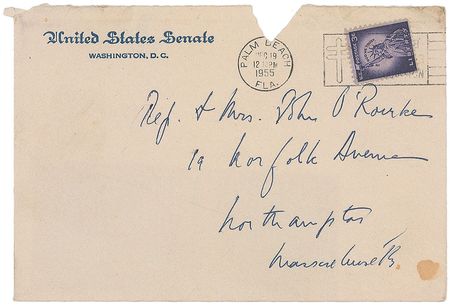 United States Senate
WASHINGTON, D. C.
PALM BEACH
DEC 19
12 PM
1955
FLA.
3¢
Rep. & Mrs. John O'Rourke
19 Norfolk Avenue
Northampton
Massachusetts